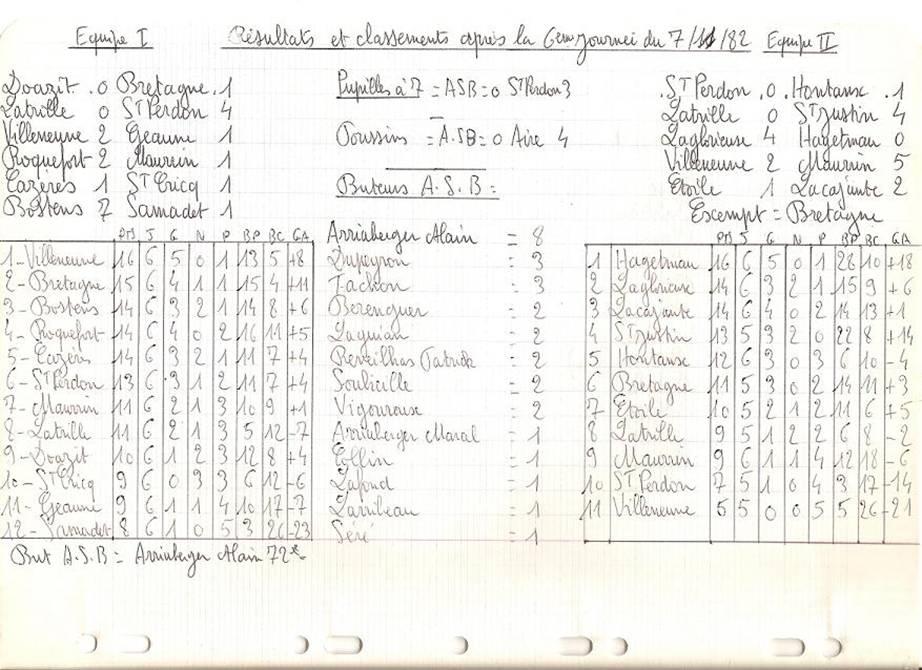 Equipe I Résultats et classements après la 6em journei du 7/11/82 Equipe II
Doazit 0 Bretagne 1
Latrille 0 St Perdon 4
Villeneuve 2 Geaune 1
Roquefort 2 Maurrin 1
Cazères 1 St Cricq 1
Bostens 7 Samadet 1
Pupilles à 7 = ASB = 0 St Perdon 3
Poussins = A.S.B = 0 Aire 4
Buteurs A.S.B =
St Perdon 0 Hontanse 1
Latrille 0 St Justin 4
Laglorieuse 4 Hagetman 0
Villeneuve 2 Maurrin 5
Etoile 1 Lacajunte 2
Escempt = Bretagne
PTS J G N P BP BC GA
1-Villeneuve 16 6 5 0 1 13 5 +8
2-Bretagne 15 6 4 1 1 15 4 +11
3-Bostens 14 6 3 2 1 14 8 +6
4-Roquefort 14 6 4 0 2 16 11 +5
5-Cazères 14 6 3 2 1 11 7 +4
6-St Perdon 13 6 3 1 2 11 7 +4
7-Maurrin 11 6 2 1 3 10 9 +1
8-Latrille 11 6 2 1 3 5 12 -7
9-Doazit 10 6 1 2 3 12 8 +4
10-St Cricq 9 6 0 3 3 6 12 -6
11-Geaune 9 6 1 1 4 10 17 -7
12-Samadet 8 6 1 0 5 3 26 -23
But A.S.B = Arriuberger Alain 72e
Arriuberger Alain = 8
Dupeyron = 3
Tachon = 3
Berenguer = 2
Laquian = 2
Reveilhas Patrick = 2
Soubicille = 2
Vigouroux = 2
Arriuberger Maral = 1
Ellin = 1
Lafond = 1
Larribeau = 1
Séré = 1
PTS J G N P BP BC GA
1 Hagetman 16 6 5 0 1 28 10 +18
2 Laglorieuse 14 6 3 2 1 15 9 +6
3 Lacajunte 14 6 4 0 2 14 13 +1
4 St Justin 13 5 3 2 0 22 8 +14
5 Hontanse 12 6 3 0 3 6 10 -4
6 Bretagne 11 5 3 0 2 14 11 +3
7 Etoile 10 5 2 1 2 11 6 +5
8 Latrille 9 5 1 2 2 6 8 -2
9 Maurrin 9 6 1 1 4 12 18 -6
10 St Perdon 7 5 1 0 4 3 17 -14
11 Villeneuve 5 5 0 0 5 5 26 -21